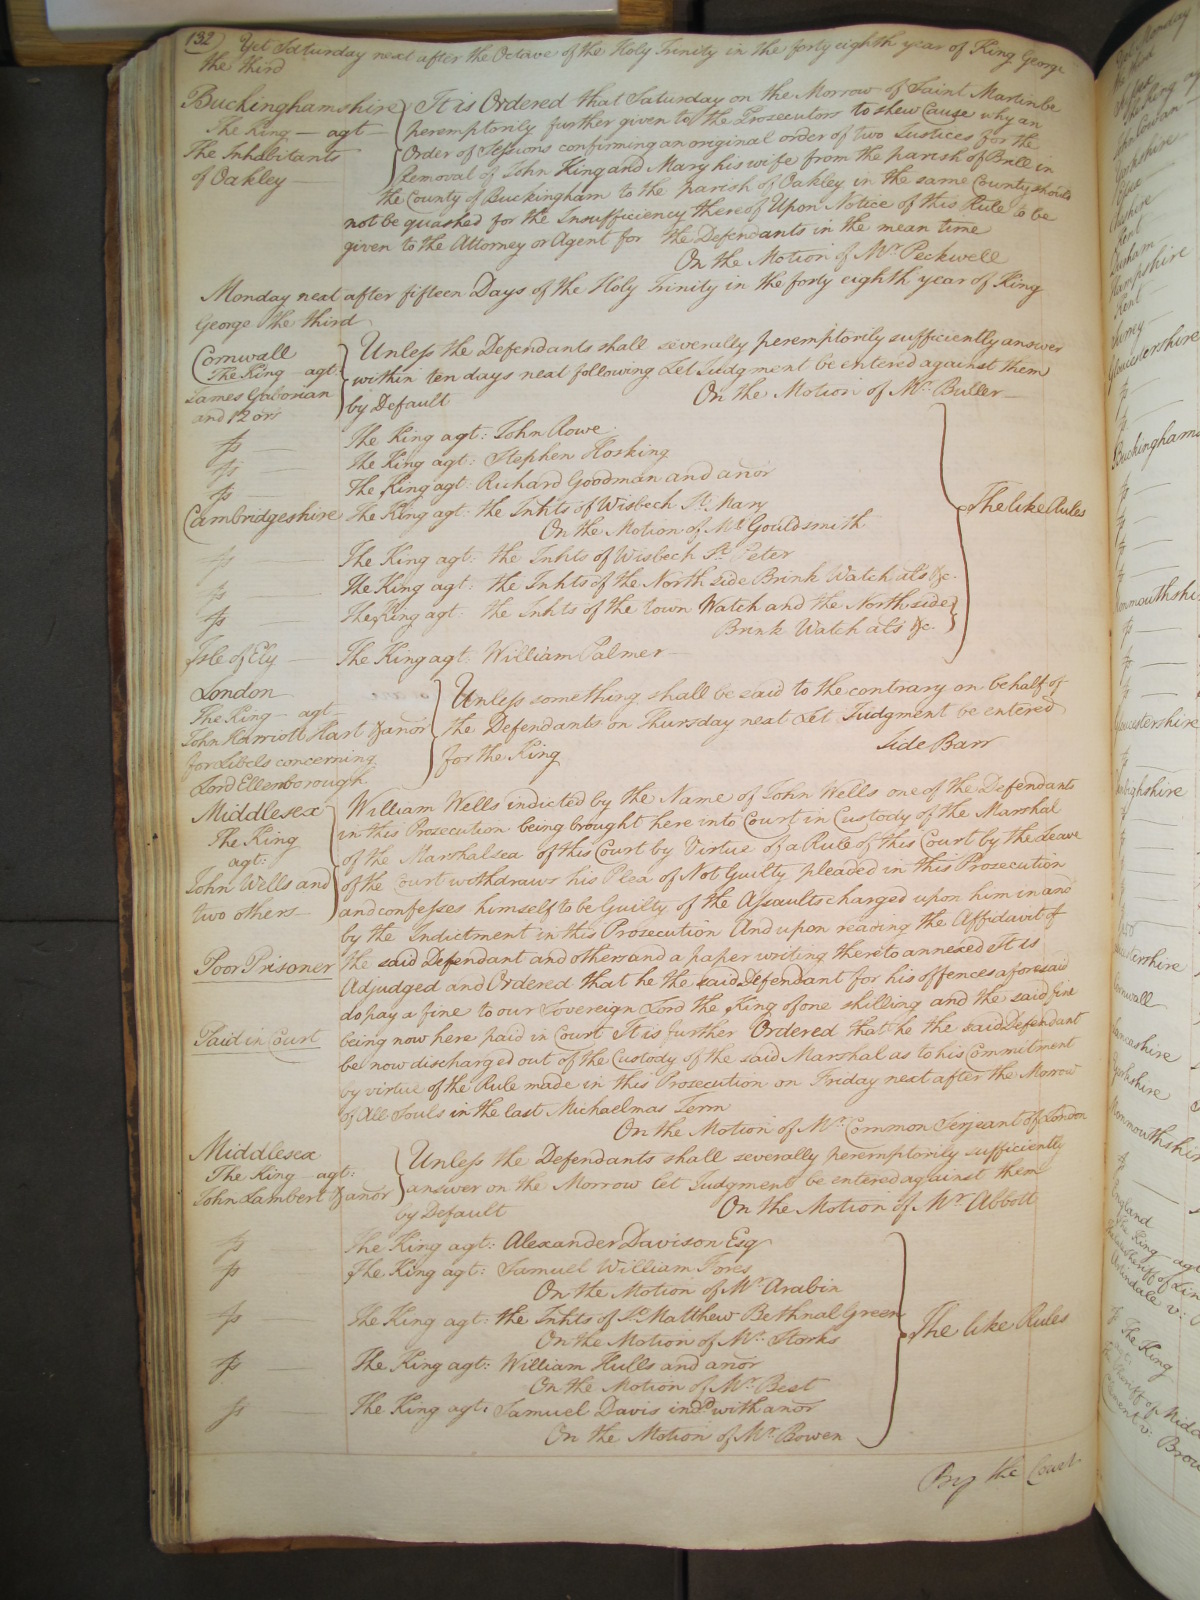 132 Yet Saturday next after the Octave of the Holy Trinity in the forty eighth year of King George
the third
Buckinghamshire
The King — agt —
The Inhabitants
of Oakley —
It is Ordered that Saturday on the Morrow of Saint Martin be
peremptorily further given to the Prosecutors to shew Cause why an
Order of Sessions confirming an original order of two Justices for the
Removal of John King and Mary his wife from the parish of Brill in
the County of Buckingham to the parish of Oakley in the same County should
not be quashed for the Insufficiency thereof Upon Notice of this Rule to be
given to the Attorney or Agent for the Defendants in the mean time
On the Motion of Mr. Peckwell
Monday next after fifteen Days of the Holy Trinity in the forty eighth year of King
George the third
Cornwall
The King agt:
James Gaborian
and 12 ors
Unless the Defendants shall severally peremptorily sufficiently answer
within ten days next following Let Judgment be entered against them
by Default On the Motion of Mr. Buller —
fs — The King agt: John Rowe
fs — The King agt: Stephen Hosking
fs — The King agt: Richard Goodman and anor
Cambridgeshire The King agt: the Inhts of Wisbech St. Mary
The like Rules
On the Motion of Mr. Gouldsmith
fs — The King agt: the Inhts of Wisbech St. Peter
fs — The King agt: the Inhts of the North side Brink Watch als &c.
fs — The King agt: the Inhts of the town Watch and the North side
Brink Watch als &c.
Isle of Ely — The King agt: William Palmer —
London
The King — agt —
John Harriott Hart & anor
for Libels concerning
Lord Ellenborough
Unless something shall be said to the contrary on behalf of
the Defendants on Thursday next Let Judgment be entered
for the King Side Barr
Middlesex
The King
agt:
John Wells and
two others —
Poor Prisoner
Paid in Court
William Wells indicted by the Name of John Wells one of the Defendants
in this Prosecution being brought here into Court in Custody of the Marshal
of the Marshalsea of this Court by Virtue of a Rule of this Court by the Leave
of the Court withdraws his Plea of Not Guilty pleaded in this Prosecution
and confesses himself to be Guilty of the Assaults charged upon him in and
by the Indictment in this Prosecution And upon reading the Affidavit of
the said Defendant and others and a paper writing thereto annexed It is
Adjudged and Ordered that he the said Defendant for his offences aforesaid
do pay a fine to our Sovereign Lord the King of one shilling and the said fine
being now here paid in Court It is further Ordered that he the said Defendant
be now discharged out of the Custody of the said Marshal as to his Commitment
by virtue of the Rule made in this Prosecution on Friday next after the Morrow
of All Souls in the last Michaelmas Term
On the Motion of Mr. Common Serjeant of London
Middlesex
The King agt:
John Lambert & anor
Unless the Defendants shall severally peremptorily sufficiently
answer on the Morrow let Judgment be entered against them
by Default On the Motion of Mr. Abbott
fs — The King agt: Alexander Davison Esq
fs — The King agt: Samuel William Fores
On the Motion of Mr. Arabin
fs — The King agt: the Inhts of St. Matthew Bethnal Green
The like Rules
On the Motion of Mr. Storks
fs — The King agt: William Hulls and anor
On the Motion of Mr. Best
fs — The King agt: Samuel Davis indd. with anor
On the Motion of Mr. Bowen
By the Court